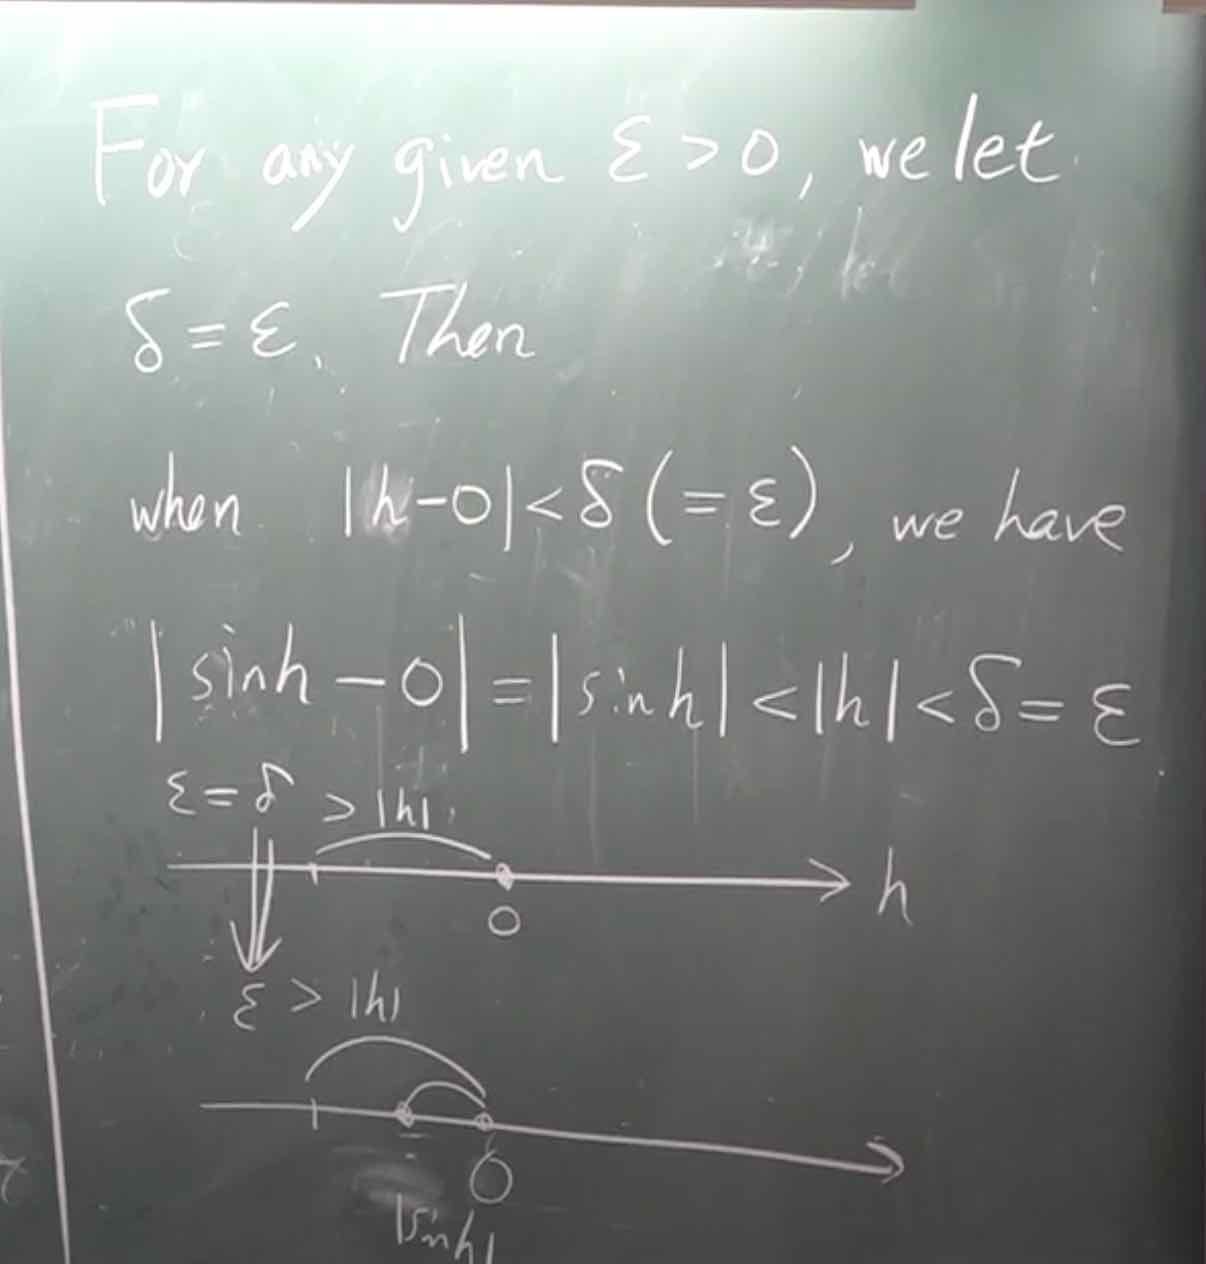 For any given ε > 0, we let
δ = ε. Then
when |h-0| < δ (= ε), we have
|sinh - 0| = |sinh| < |h| < δ = ε
ε = δ > |h|
h
0
ε > |h|
0
|sinh|